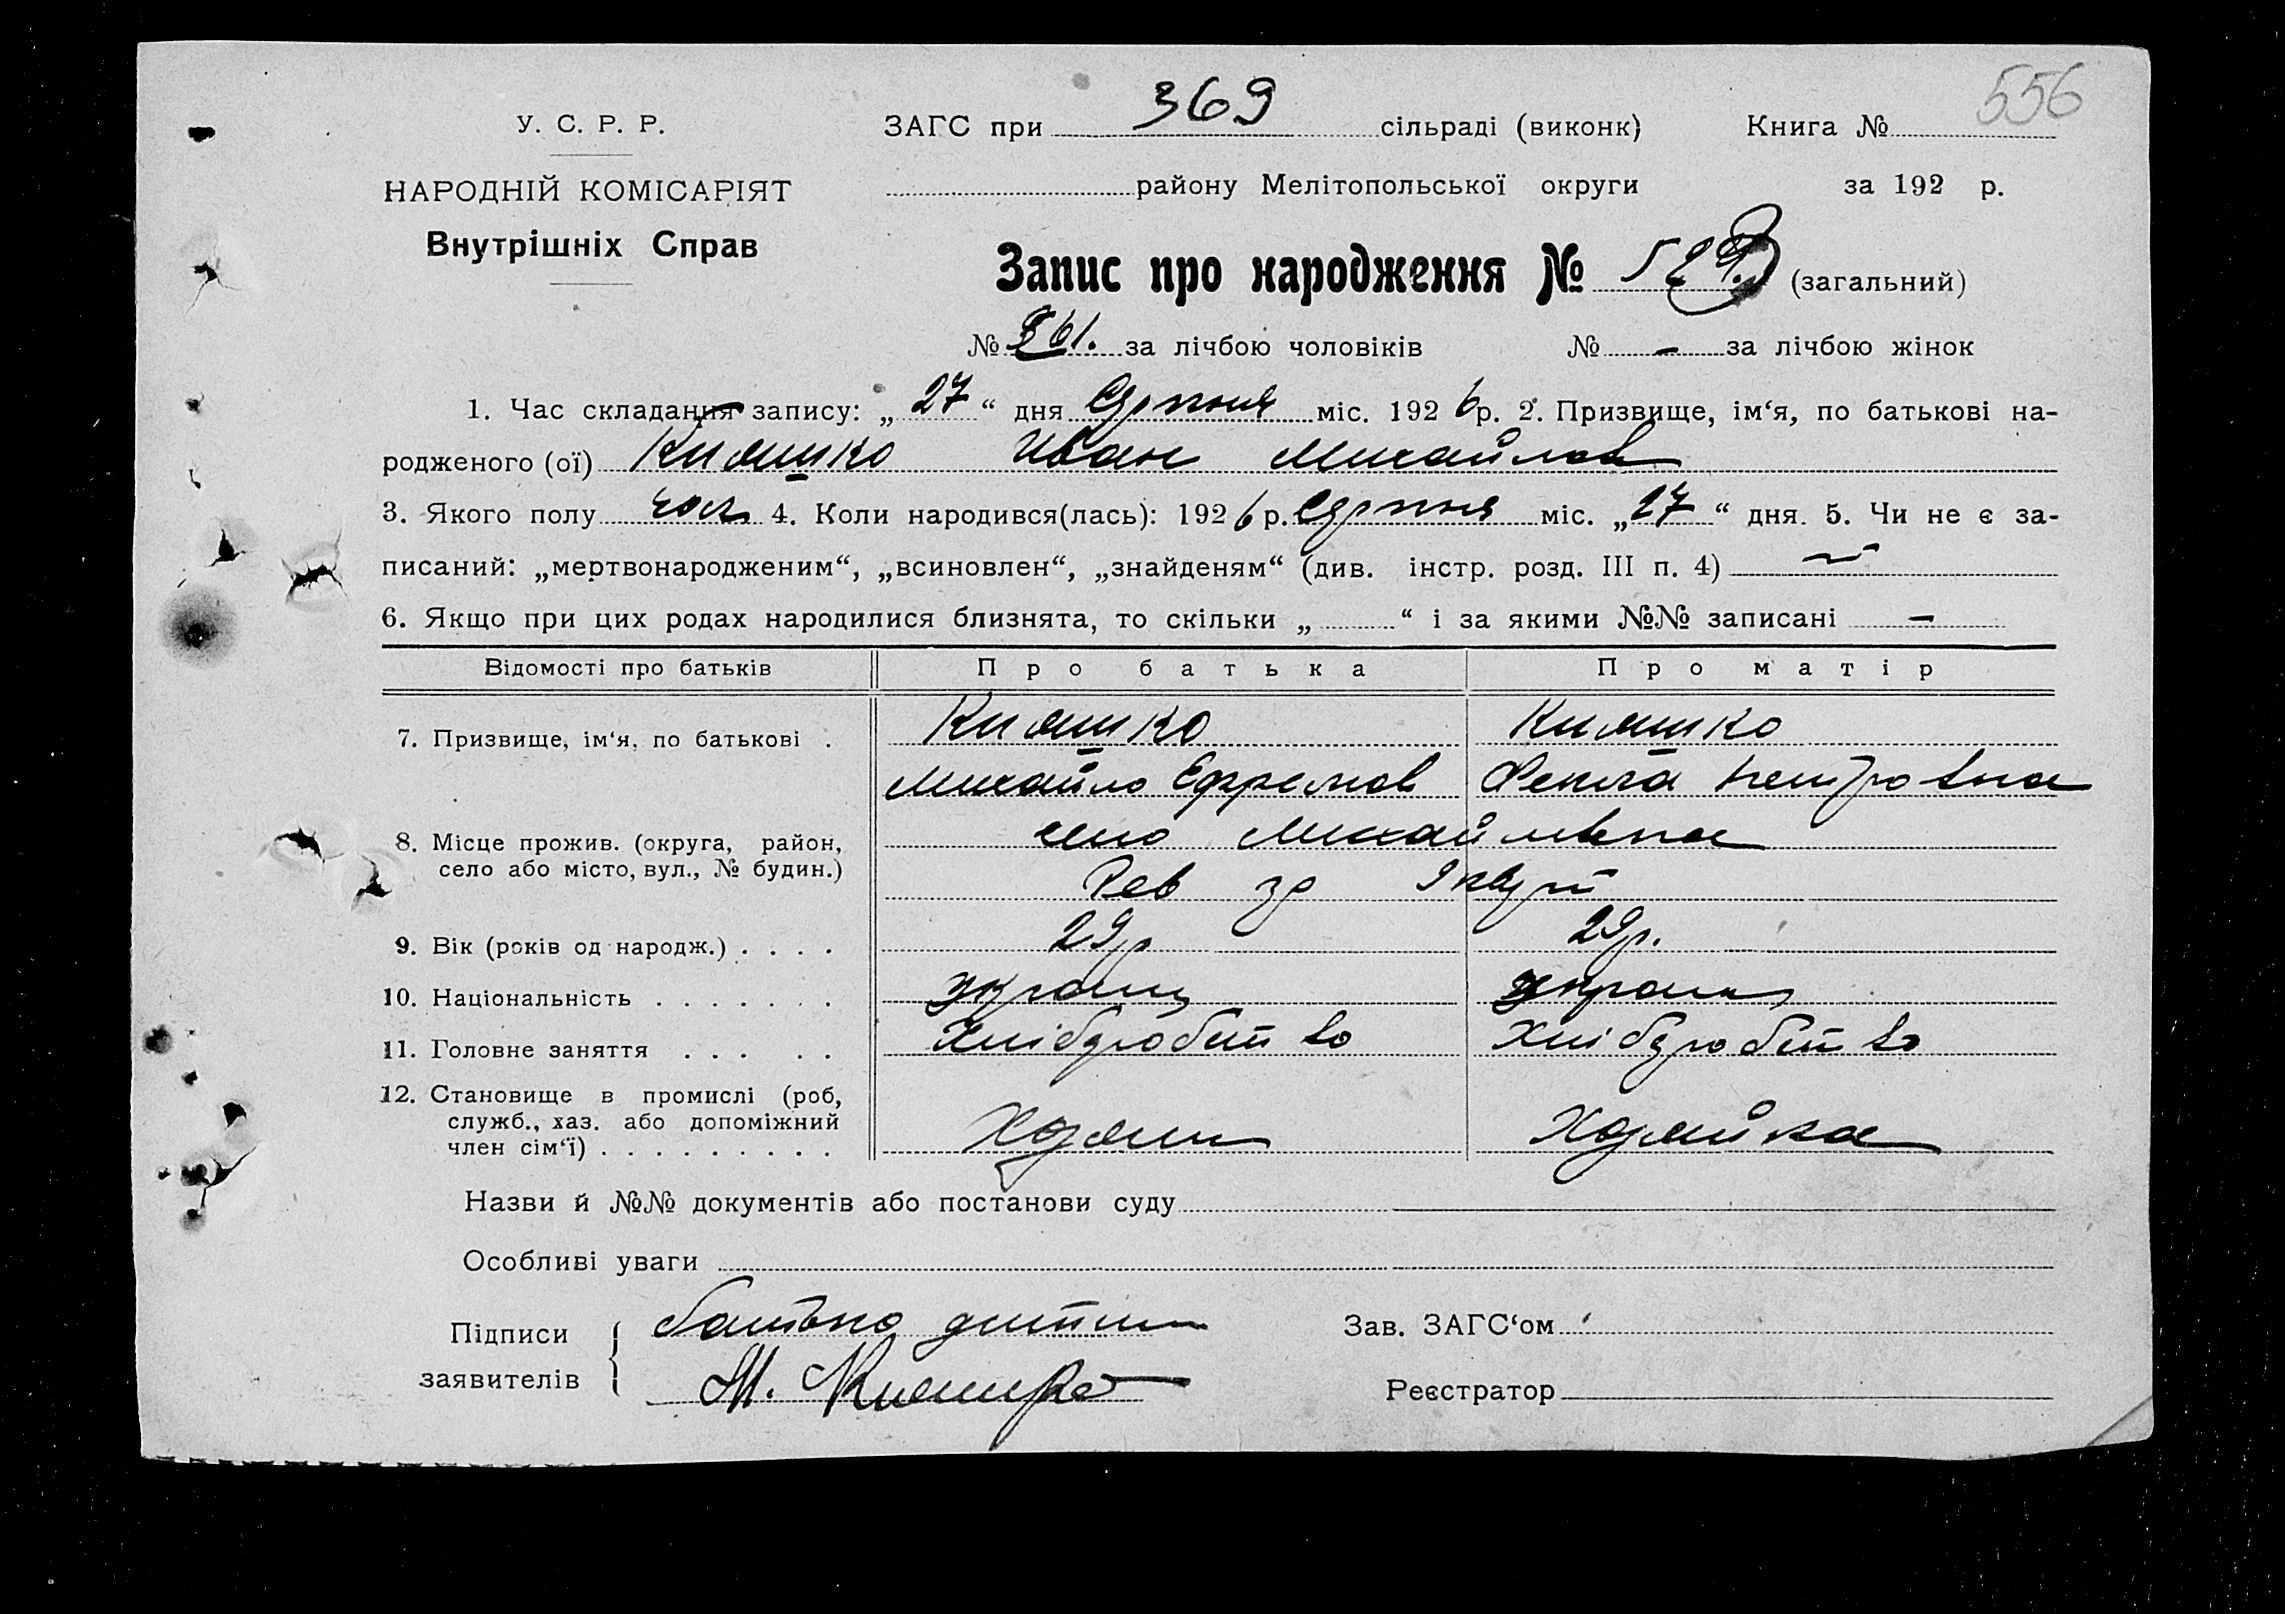 556
У. С. Р. Р.
ЗАГС при 369 сільраді (виконк)
Книга №
НАРОДНІЙ КОМІСАРІЯТ
району Мелітопольської округи
за 192 р.
Внутрішніх Справ
Запис про народження № (загальний)
№ 361. за лічбою чоловіків № — за лічбою жінок
1. Час складання запису: „ 27 “ дня Серпня міс. 1926 р. 2. Призвище, ім‘я, по батькові на-
родженого (ої) Кияшко Иван Михайлов
3. Якого полу чол. 4. Коли народився(лась): 1926 р. Серпня міс. „ 27 “ дня. 5. Чи не є за-
писаний: „мертвонародженим“, „всиновлен“, „знайденям“ (див. інстр. розд. III п. 4) —
6. Якщо при цих родах народилися близнята, то скільки „ “ і за якими №№ записані —
Відомості про батьків Про батька Про матір
7. Призвище, ім‘я, по батькові . Кияшко Кияшко
Михайло Ефремов Фекла Петровна
8. Місце прожив. (округа, район, село Михайлівка
село або місто, вул., № будин.) Рев
9. Вік (років од народж.) . . . . 29р 29р.
10. Національність . . . . . . . україн україн
11. Головне заняття . . . . . Хлібробство Хлібробство
12. Становище в промислі (роб,
служб., хаз. або допоміжний
член сім‘ї) . . . . . . . . . Хазяин Хазяйка
Назви й №№ документів або постанови суду
Особливі уваги
Підписи заявителів
батько дитини
М. Кияшко
Зав. ЗАГС‘ом
Реєстратор